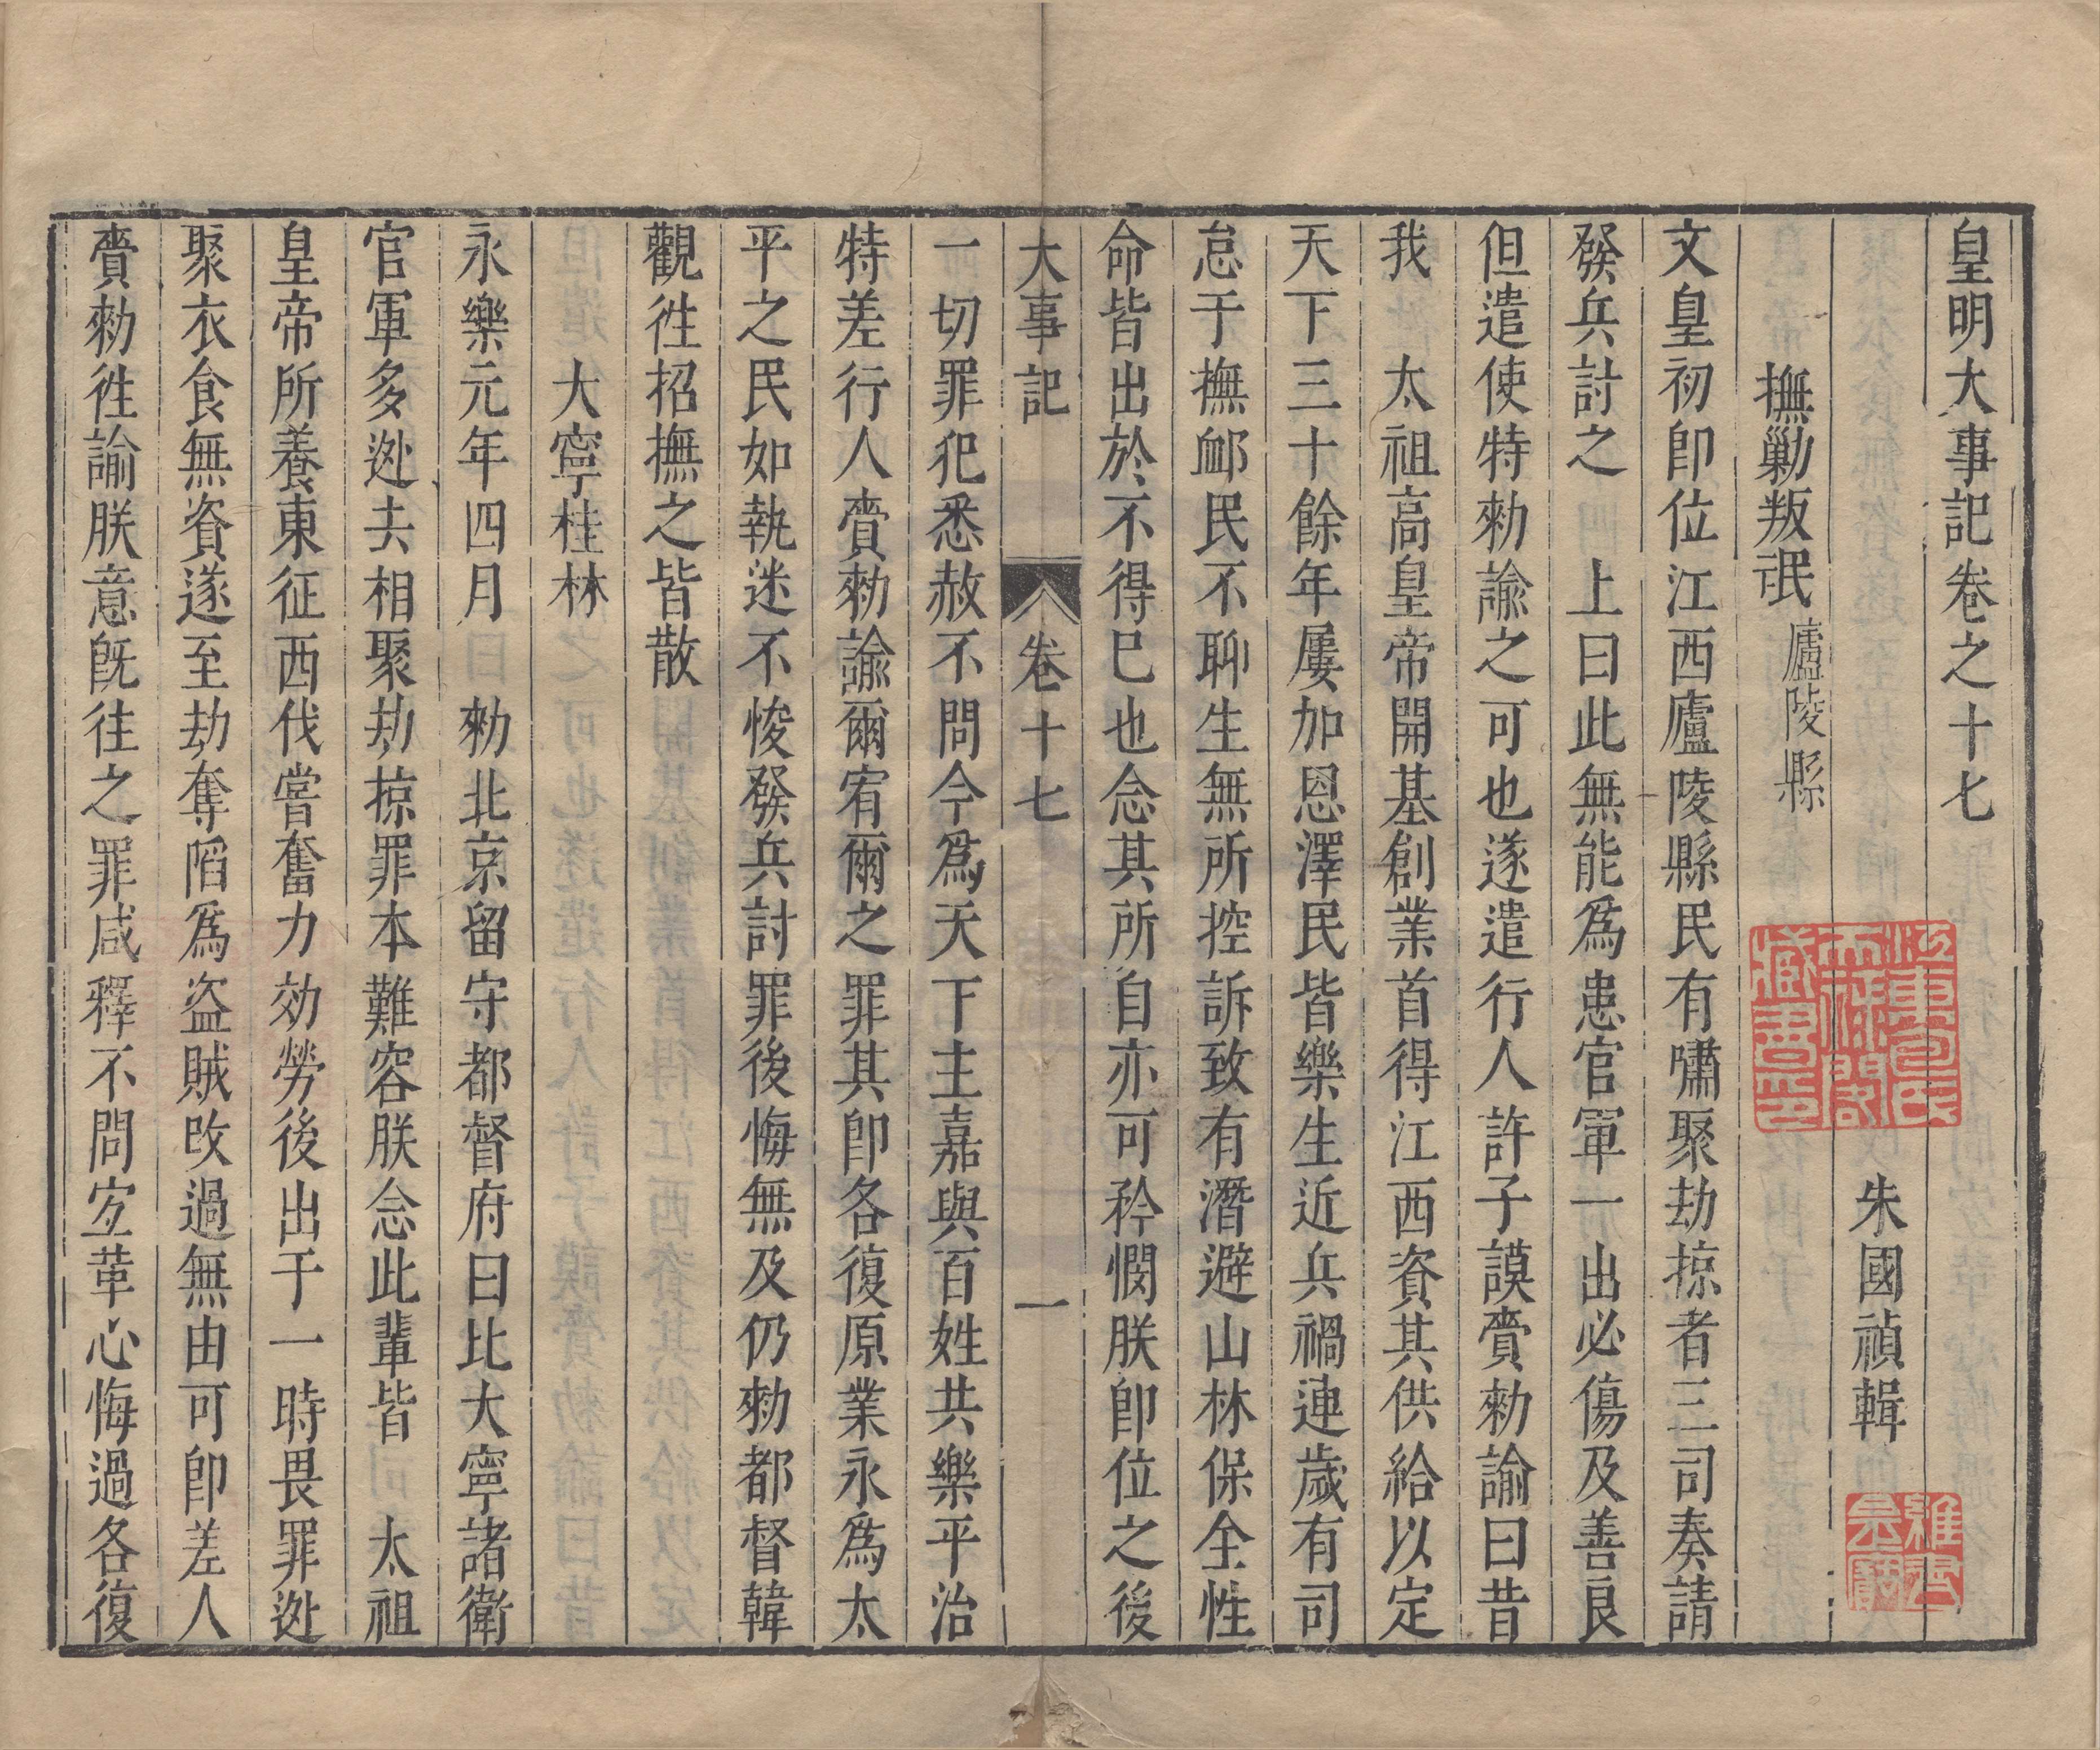 皇明大事記卷之十七
朱國禎輯
撫勦叛民 廬陵縣
文皇初卽位江西廬陵縣民有嘯聚劫掠者三司奏請
發兵討之 上曰此無能爲患官軍一出必傷及善良
但遣使特勑諭之可也遂遣行人許子謨賫勑諭曰昔
我 太祖高皇帝開基創業首得江西資其供給以定
天下三十餘年屢加恩澤民皆樂生近兵禍連歲有司
怠于撫卹民不聊生無所控訴致有潛避山林保全性
命皆出於不得已也念其所自亦可矜憫朕卽位之後
大事記 卷十七 一
一切罪犯悉赦不問今爲天下主嘉與百姓共樂平治
特差行人賫勑諭爾宥爾之罪其卽各復原業永爲太
平之民如執迷不悛發兵討罪後悔無及仍勑都督韓
觀徃招撫之皆散
大寧桂林
永樂元年四月 勑北京留守都督府曰比大寧諸衛
官軍多迯去相聚劫掠罪本難容朕念此輩皆 太祖
皇帝所養東征西伐嘗奮力効勞後出于一時畏罪迯
聚衣食無資遂至劫奪䧟爲盗賊改過無由可卽差人
賫勑徃諭朕意旣往之罪咸釋不問宐革心悔過各復